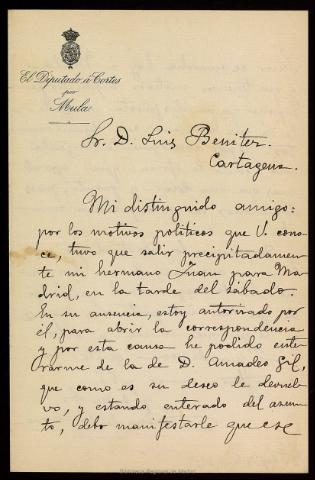 El Diputado à Cortes
por
Mula
Sr. D. Luis Benitez.
Cartagena.
Mi distinguido amigo:
por los motivos politicos que V. cono-
ce, tuvo que salir precipitadamen-
te mi hermano Juan para Ma-
drid, en la tarde del sábado.
En su ausencia, estoy autorizado por
él, para abrir la correspondencia
y por esta causa he podido ente-
rarme de la de D. Amadeo Gil,
que como es su deseo le devuel-
vo, y estando enterado del asun-
to, debo manifestarle que ese